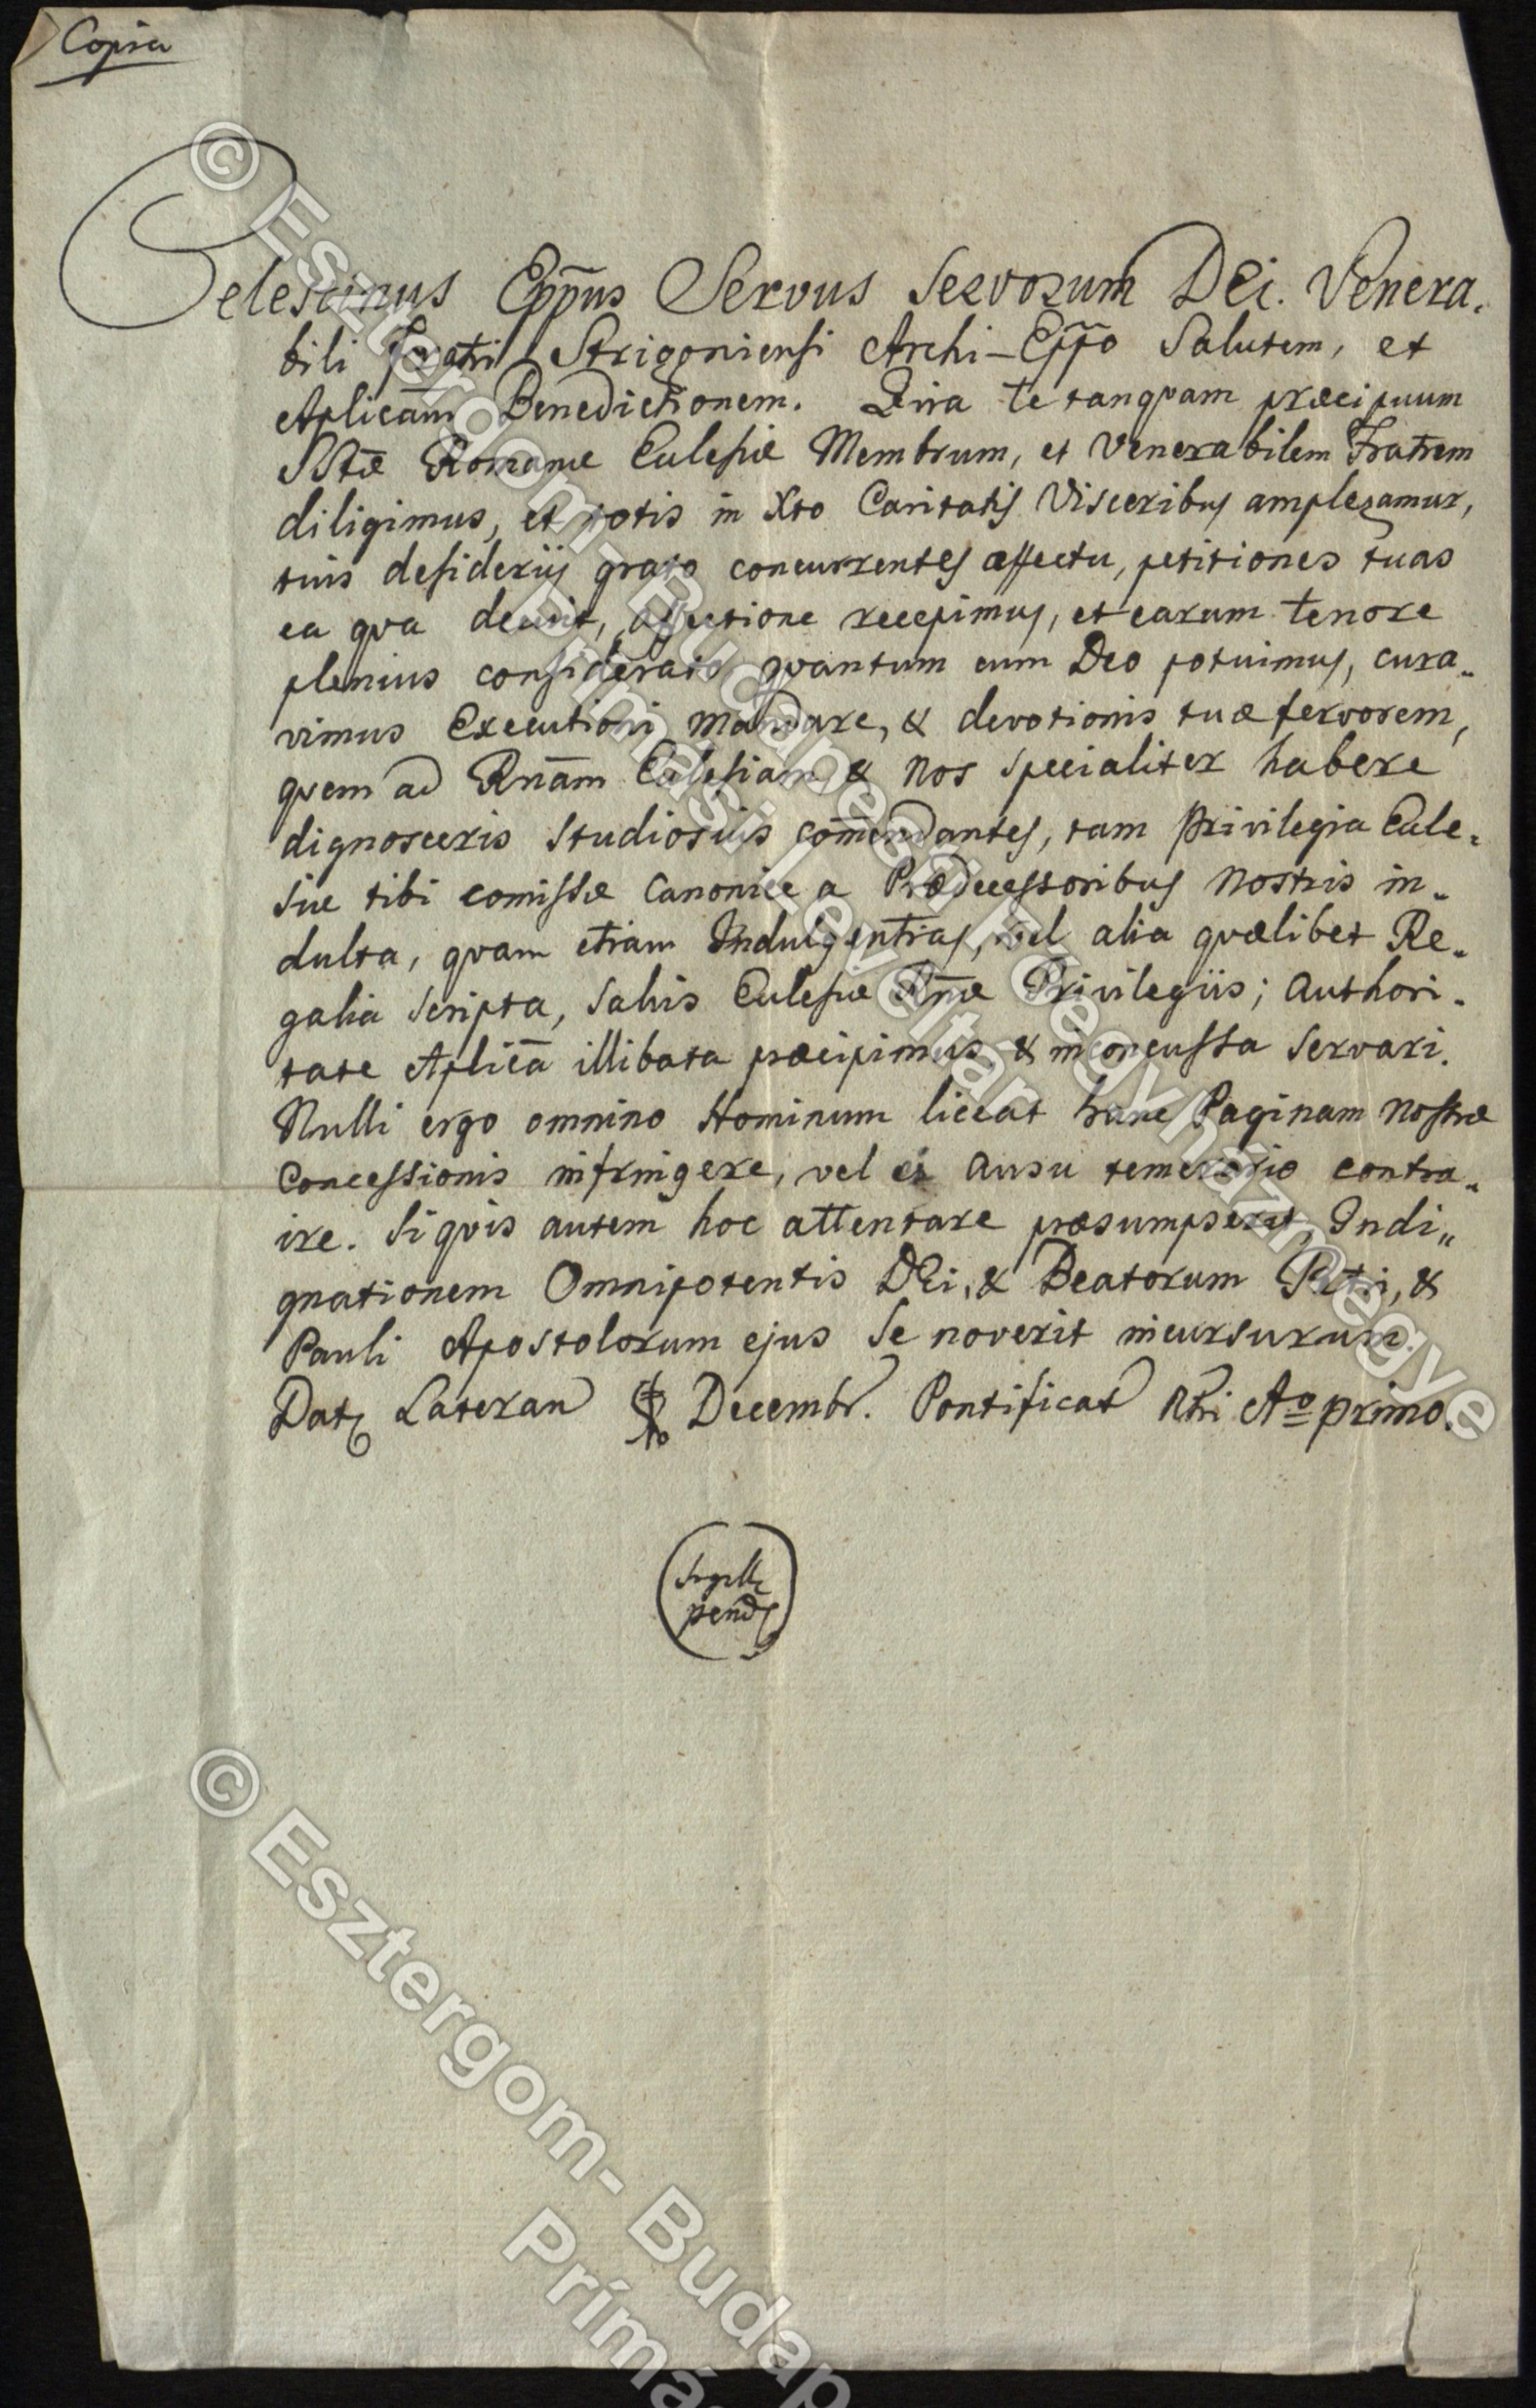 Copia
Celestinus Ep̄p̄us Servus Servorum DEi. Venera„
bili Fratri Strigoniensi Archi-Ep̄p̄o Salutem, et
Aplicām Benedictionem. Quia te tanqvam præcipuum
SStæ Romanæ Ecclesiæ Membrum, et Venerabilem Fratrem
diligimus, et totis in Xto Caritatis Visceribus amplexamur,
tuis desideriis grato concurrentes affectu, petitiones tuas
ea qva decuit, affectione recepimus, et earum tenore
plenius considerato qvantum cum Deo potuimus, cura„
vimus Executioni mandare, & devotionis tuæ fervorem,
qvem ad Rnām Ecclesiam & Nos specialiter habere
dignosceris studiosius com̄endantes, tam Privilegia Eccle„
siæ tibi comissæ Canonice a Prædecessoribus Nostris in„
dulta, qvam etiam Indulgentias, vel alia qvælibet Re„
galia scripta, salvis Ecclesiæ Rn̄æ Privilegiis; Authori„
tate Aplicā illibata præcipimus & inconcussa servari.
Nulli ergo omnino Hominum liceat hanc Paginam Nostræ
Concessionis infringere, vel ei ausu temerario contra„
ire. Si qvis autem hoc attentare præsumpserit, Indi„
gnationem Omnipotentis DEi, & Beatorum Petri, &
Pauli Apostolorum ejus se noverit incursurum.
Dat Lateran Decembr. Pontificat Nri Ao primo.
Sigill
pend
© Esztergom-Budapesti Főegyházmegye
Prímási Levéltár
© Esztergom- Budap
Prímá